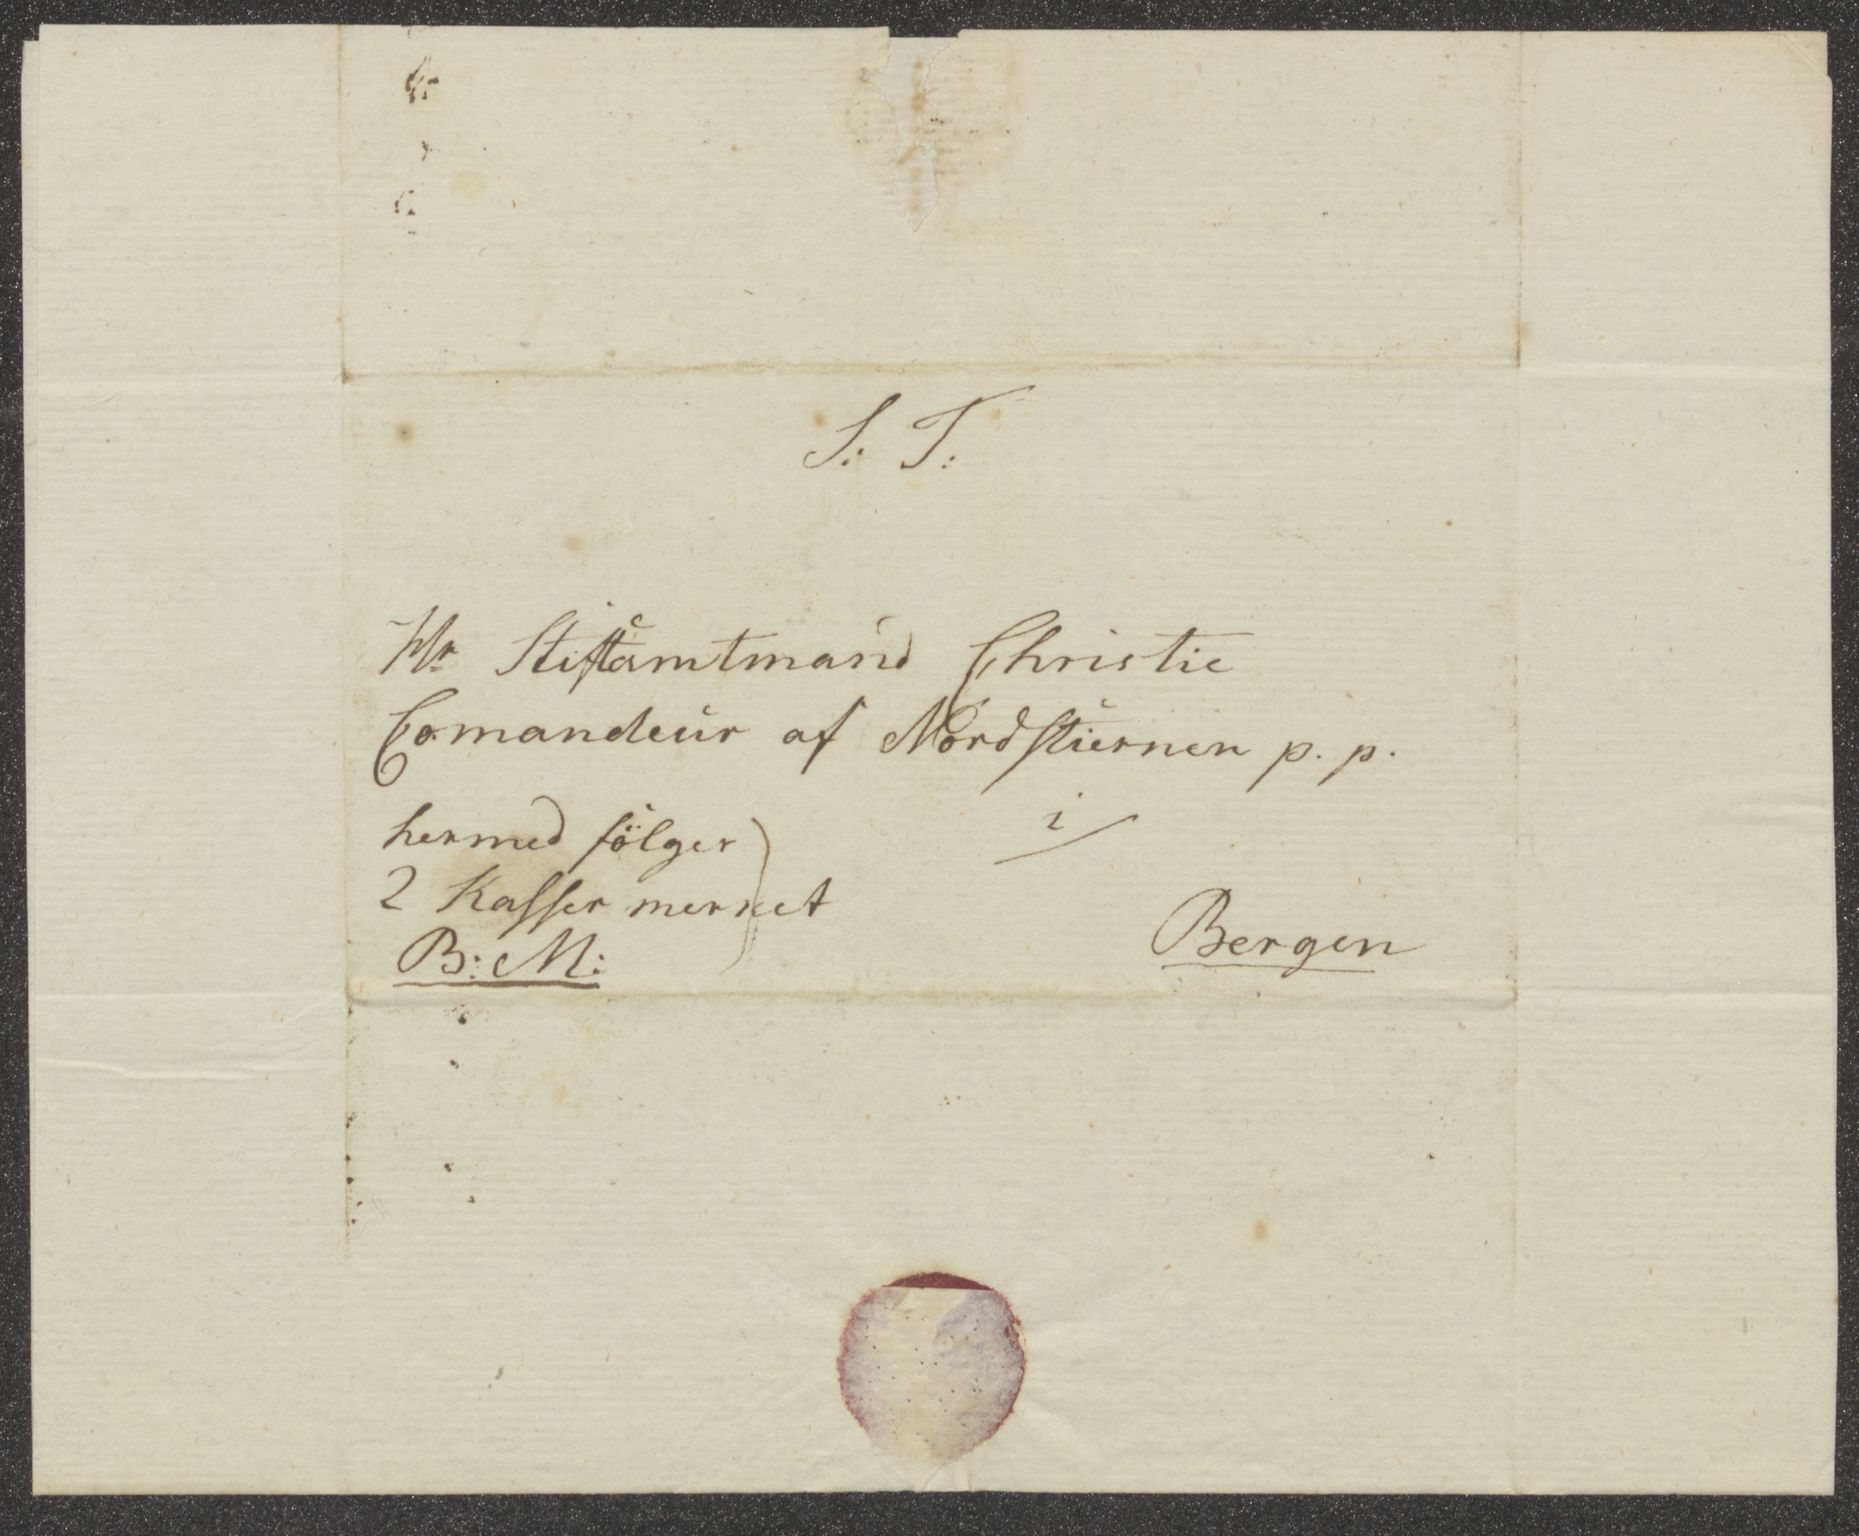 S: T:
Hr Stiftamtmand Christie
Comandeur af Nordstiernen p. p.
i
hermed fölger
2 Kasser merket
B: M:
Bergen